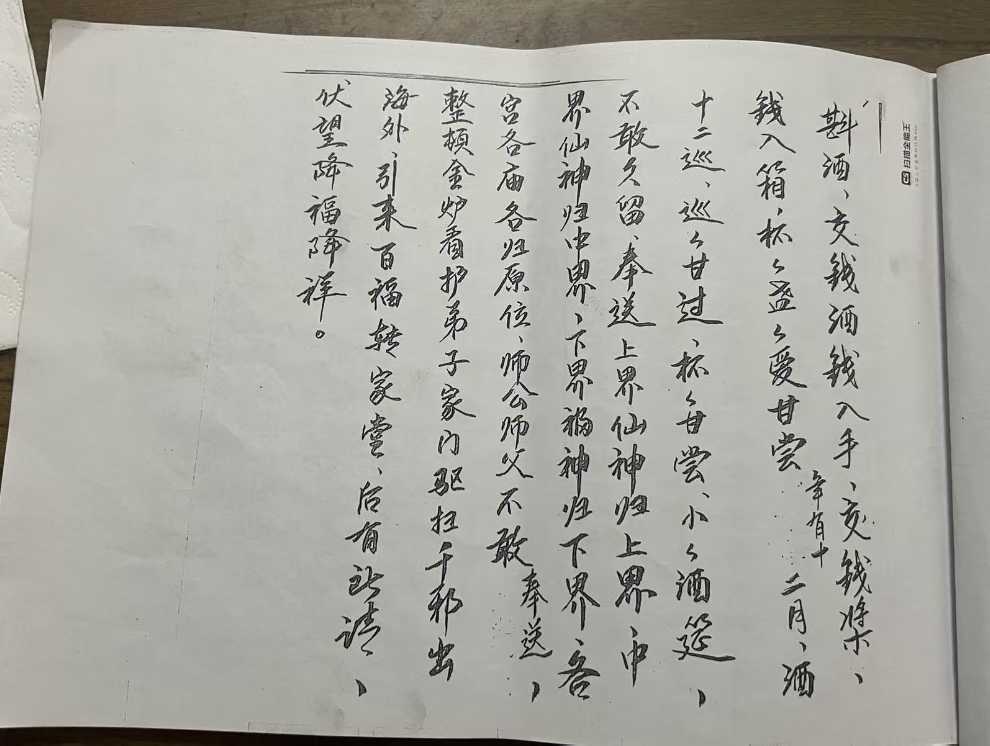 斟酒、交钱酒钱入手、交钱将来、
钱入箱，杯々盏々爱甘尝 年有十二月、酒
十二巡、巡々甘过、杯々甘尝、小々酒筵、
不敢久留、奉送上界仙神归上界、中
界仙神归中界、下界祸神归下界、各
宫各庙各归原位、师公师父不敢奉送、
整顿金炉看护弟子家门驱扫千邪出
海外、引来百福转家堂、后有政请、
伏望降福降祥。